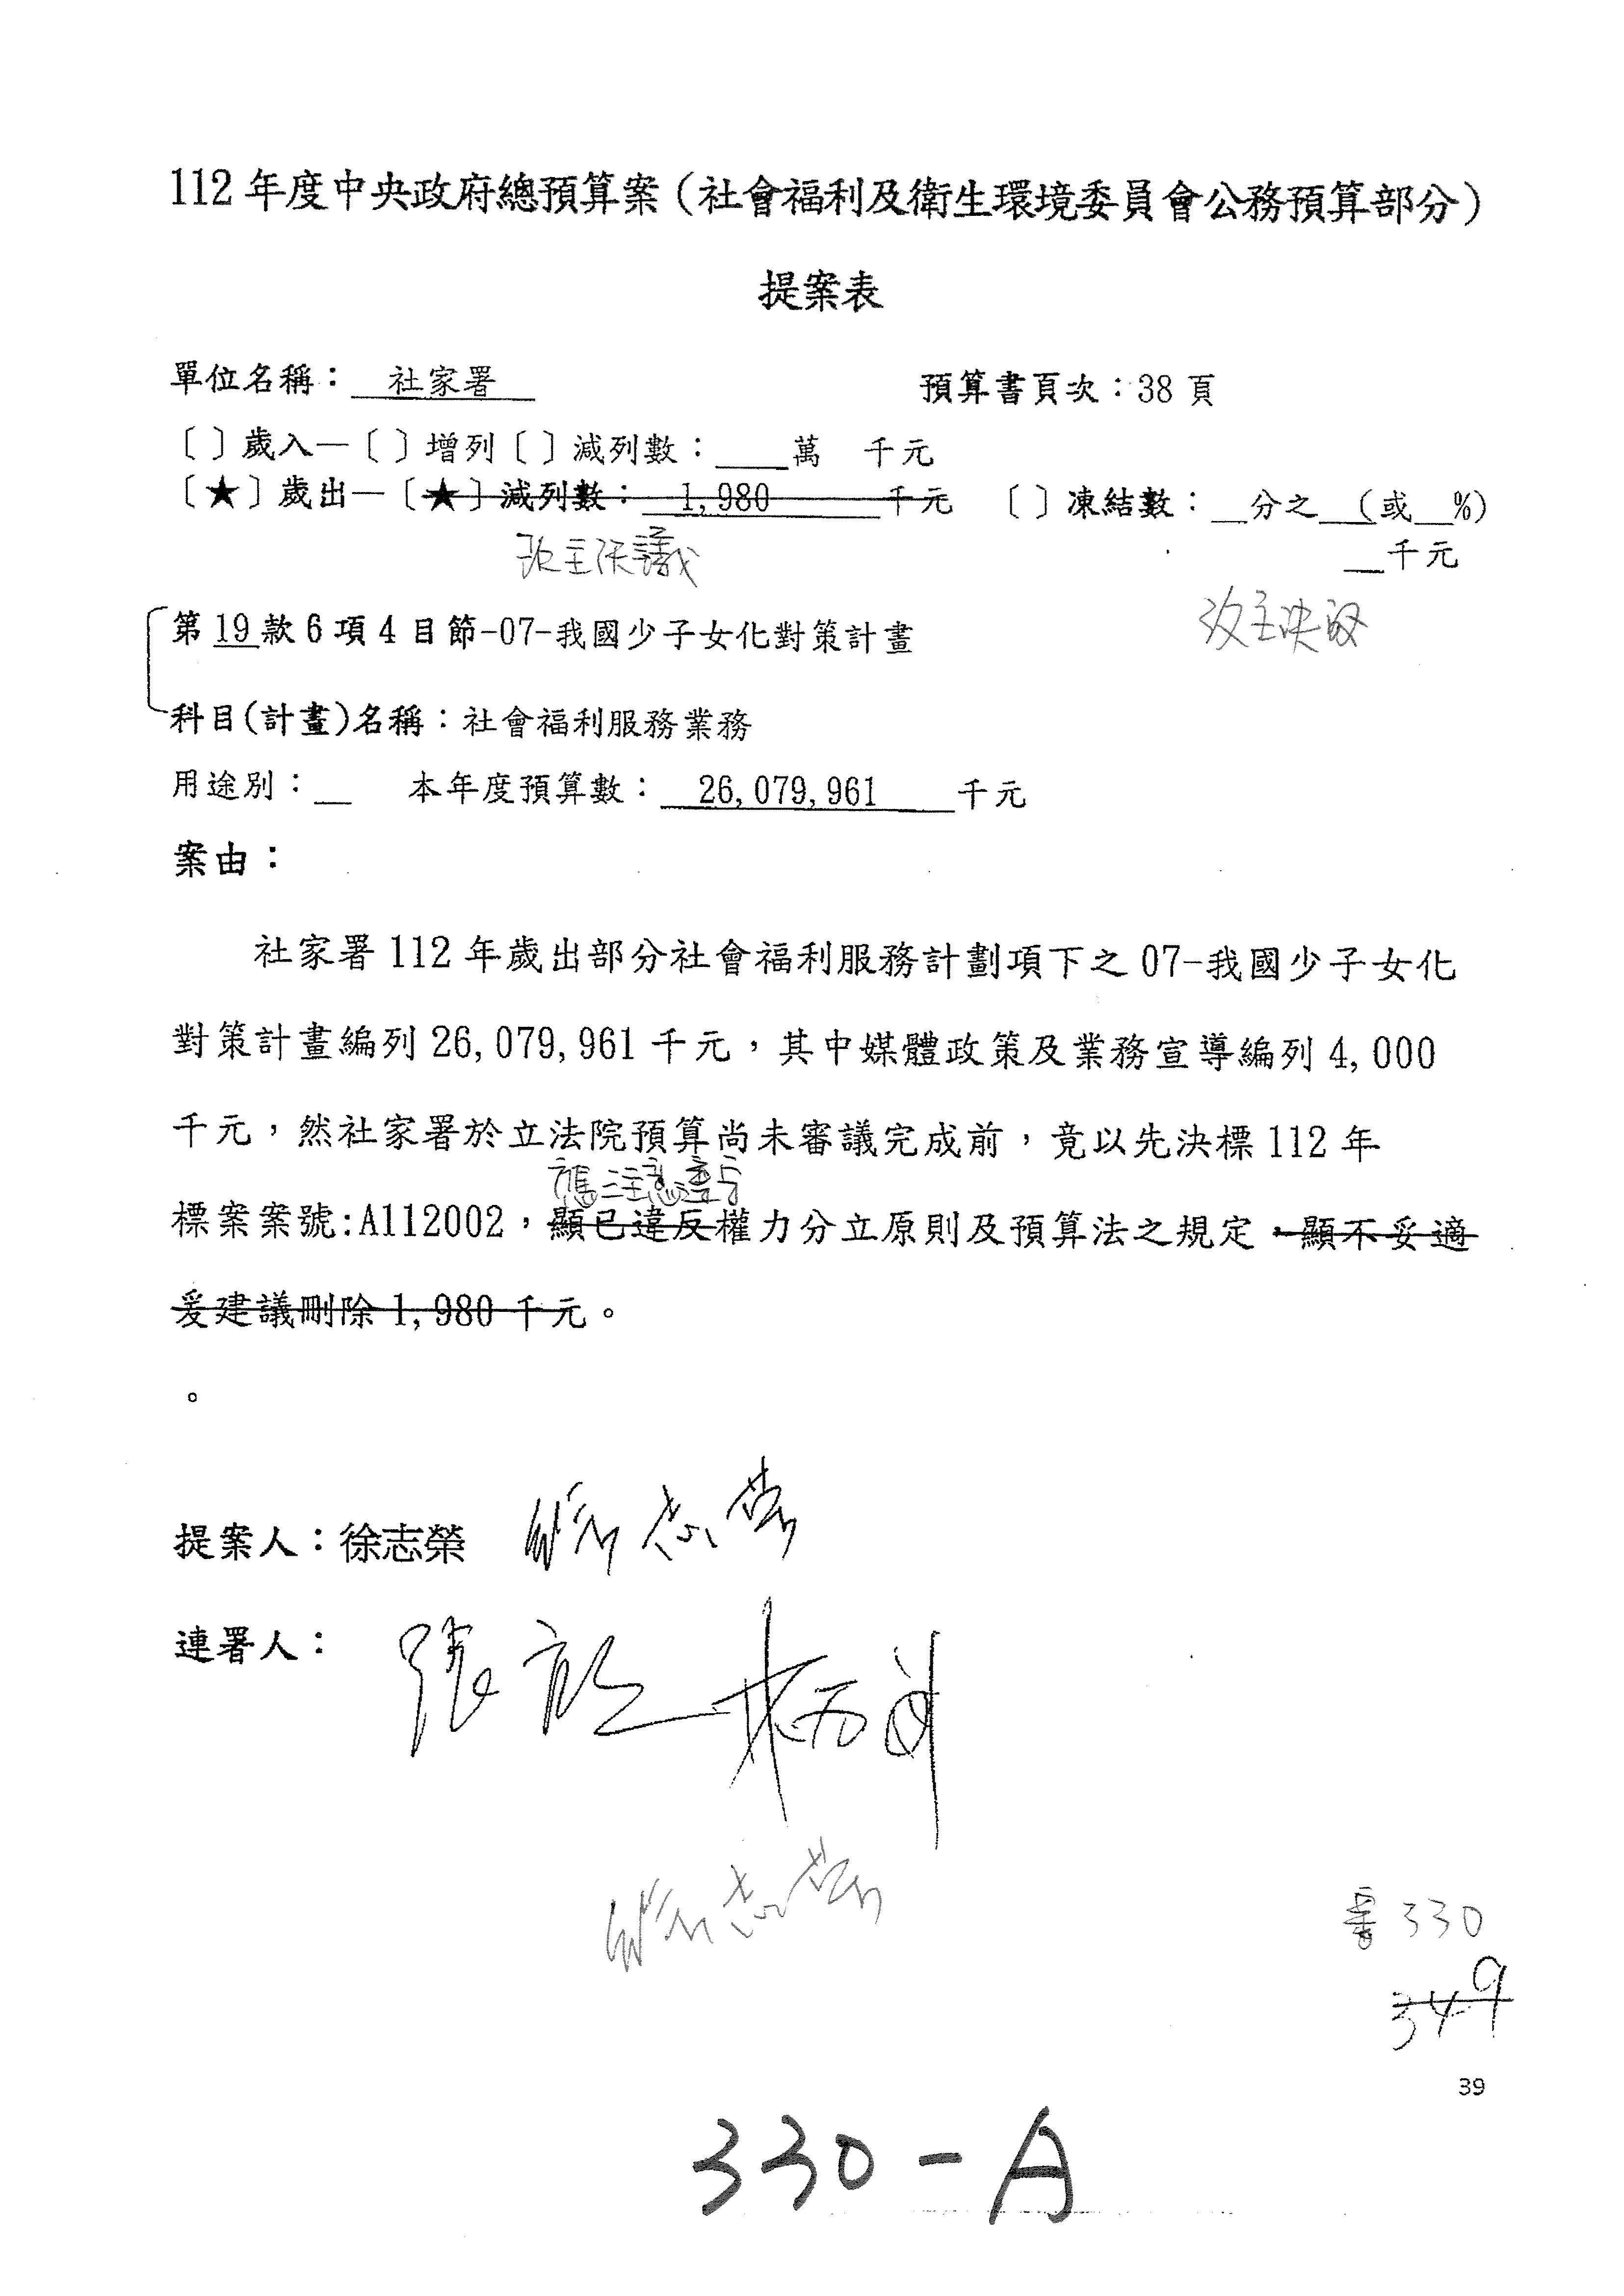 112年度中央政府總預算案（社會福利及衛生環境委員會公務預算部分）
提案表
單位名稱：社家署 預算書頁次：38 頁
〔〕歲入—〔〕增列〔〕減列數：____萬 千元
〔★〕歲出—〔★〕減列數：1,980 千元 〔〕凍結數：__分之__（或__%）
__千元
改主決議
第19款6項4目節-07-我國少子女化對策計畫
科目(計畫)名稱：社會福利服務業務
用途別：__ 本年度預算數：26,079,961 千元
案由：
社家署 112 年歲出部分社會福利服務計劃項下之 07-我國少子女化
對策計畫編列 26,079,961 千元，其中媒體政策及業務宣導編列 4,000
千元，然社家署於立法院預算尚未審議完成前，竟以先決標 112 年
應注意遵守
標案案號:A112002，顯已違反權力分立原則及預算法之規定，顯不妥適
爰建議刪除 1,980 千元。
。
提案人：徐志榮 徐志榮
連署人：
徐志榮
330
349
39
330-A